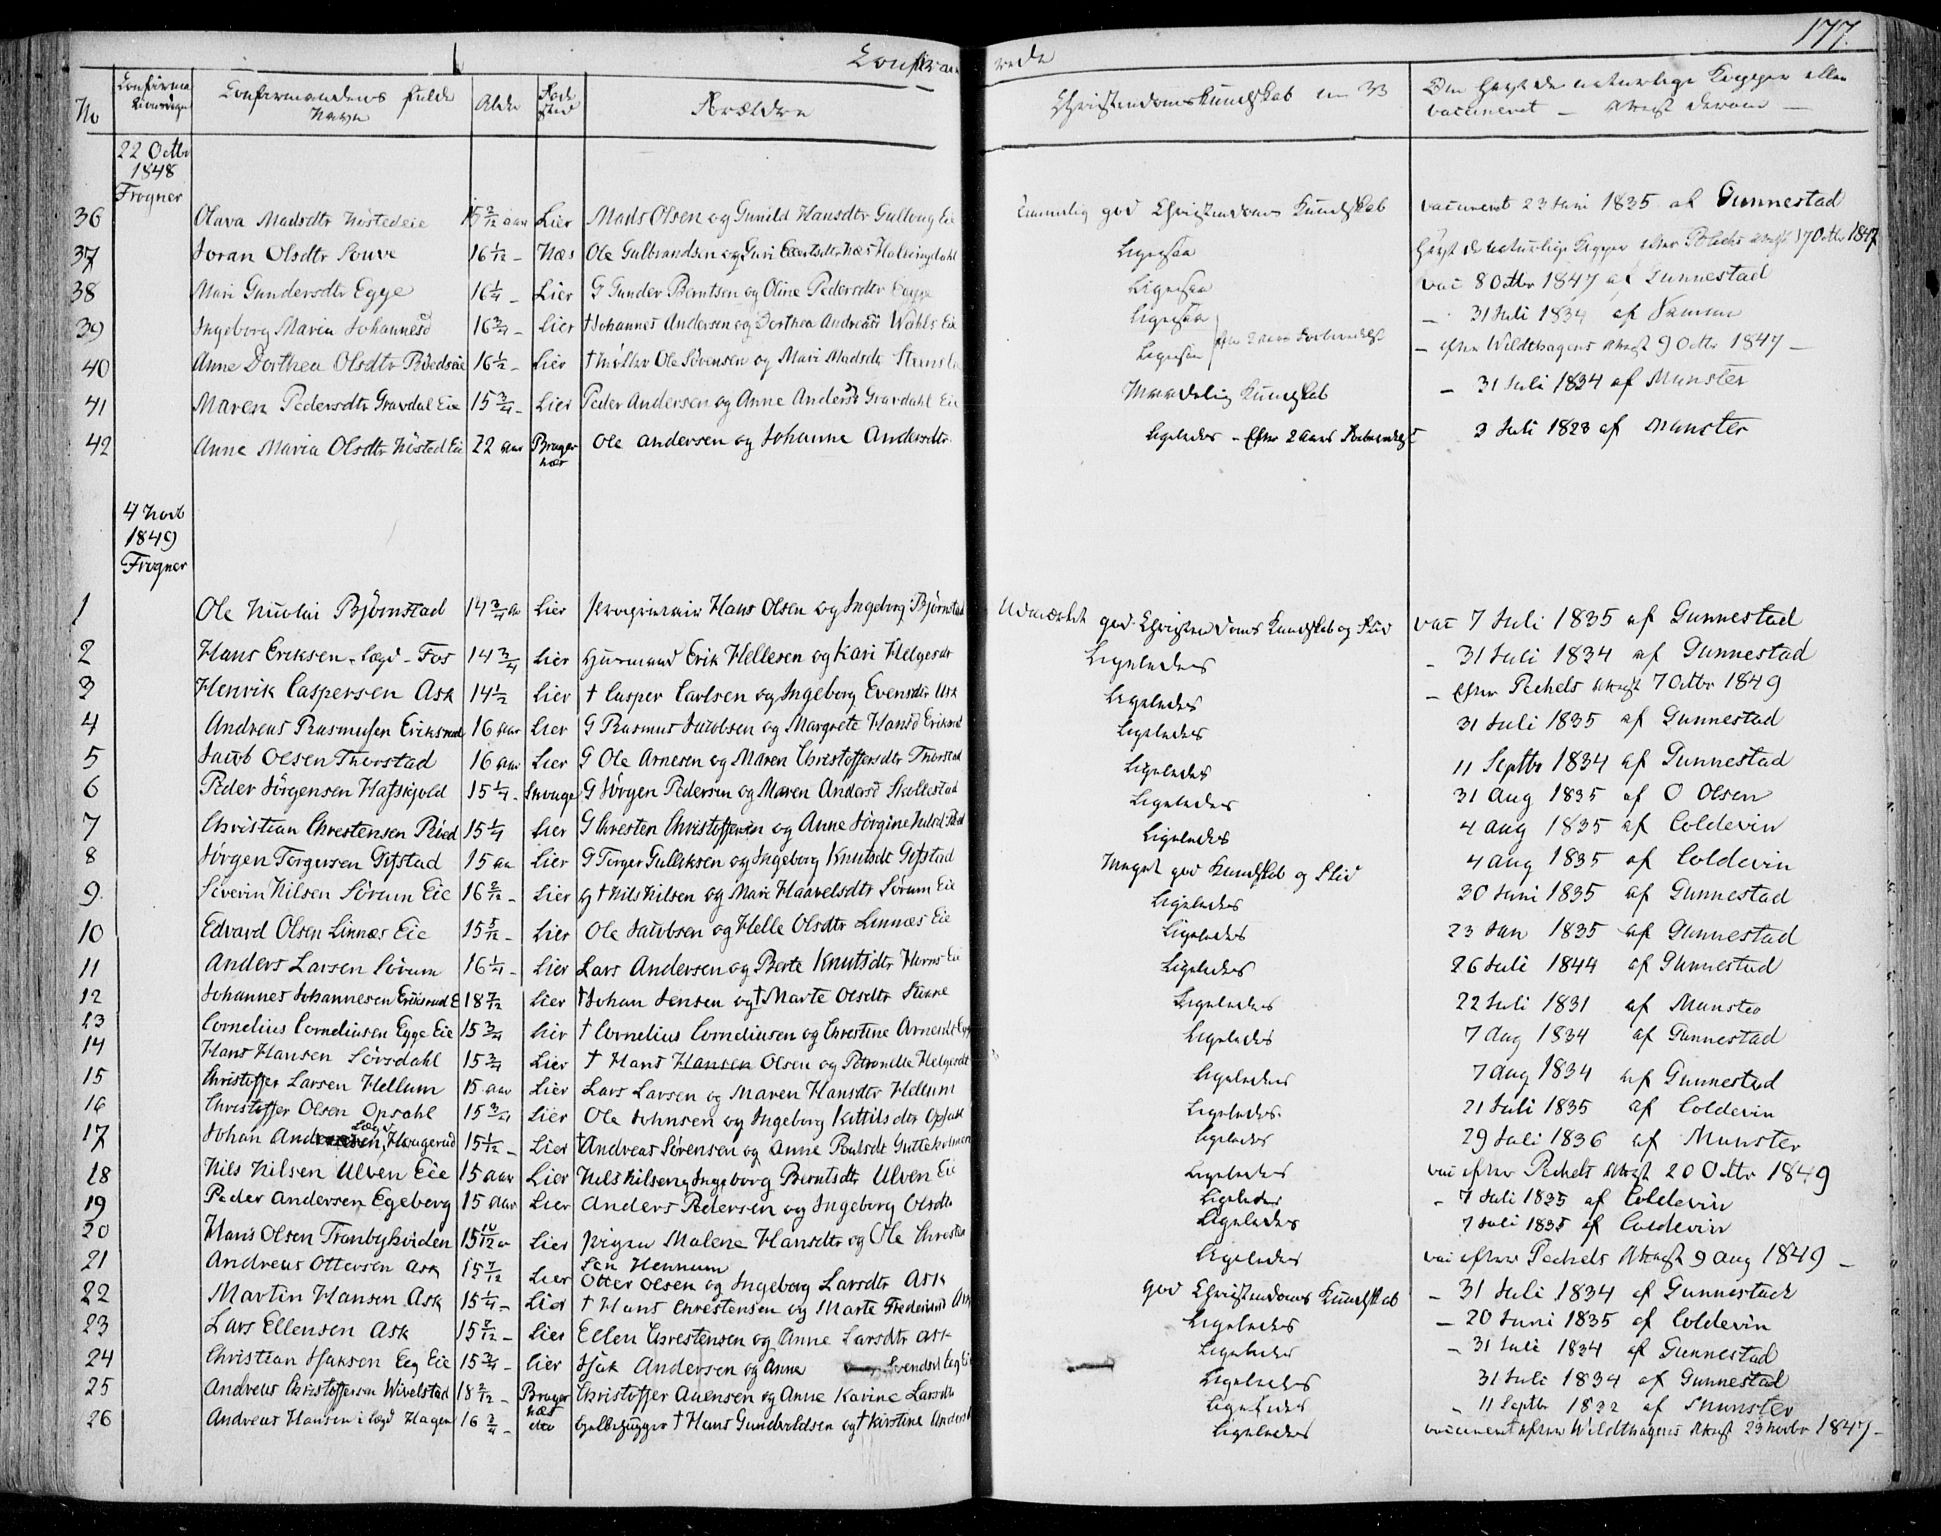 177.
Confirmerede
No Confirmationsdagen Confirmandens fulde Navn Alder Fødested Forældre Christendomskundskab Om havt de naturlige Kopper eller vaccineret — Attest derom —
22 Octbr 1848 Frogner
36 Olava Madsdtr Høstedeie 15 2/12 aar Lier Mads Olsen og Gunild Hansdtr Gullaug Eie Temmelig god Christendoms Kundskab vaccineret 23 Juni 1835 af Gunnestad
37 Joran Olsdtr Souve 16 1/12 - Næs Ole Gulbrandsen og Guri Næs Hallingdahl Ligesaa havt de naturlige Kopper efter Attest 17 Octbr 1847
38 Mari Gundersdtr Egge 16 1/4 - Lier G Gunder Berntsen og Oline Pedersdtr Egge Ligesaa vac 8 Octbr 1847 af Gunnestad
39 Ingeborg Maria Johannesd 16 3/4 - Lier † Johannes Andersen og Dorthea Andreasd Wahls Eie Ligesaa - 31 Juli 1834 af
40 Anne Dorthea Olsdtr 16 1/2 - Lier † Ole Sørensen og Mari Madsdtr Ligesaa efter 2 aars Forberedelse - efter Wildthagens Attest 9 Octbr 1847 -
41 Maren Pedersdtr Gravdal Eie 15 3/4 - Lier Peder Andersen og Anne Andersd Gravdahl Eie Maadelig Kundskab - 31 Juli 1834 af Munster
42 Anne Maria Olsdtr Høsted Eie 22 aar Bragernæs Ole Andersen og Johanne Andersdtr Ligeledes - Efter 2 Aars Forberedelse 3 Juli 1828 af Munster
4 Novb 1849 Frogner
1 Ole Nicolai Bjørnstad 14 3/4 aar Lier Hans Olsen og Ingeborg Bjørnstad Udmærket god Christendoms Kundskab og Flid vac 7 Juli 1835 af Gunnestad
2 Hans Eriksen Lægd - Fos 14 3/4 Lier Huusmand Erik Hellesen og Kari Helgesdtr Ligeledes - 31 Juli 1834 af Gunnestad
3 Henrik Caspersen Ask 14 1/2 Lier † Casper Carlsen og Ingeborg Evensdtr Ask Ligeledes - Efter Pechels Attest 7 Octbr 1849
4 Andreas Rasmusen Eriksrud 16 aar Lier G Rasmus Jacobsen og Margrete Hansd Eriksrud Ligeledes 31 Juli 1835 af Gunnestad
5 Jacob Olsen Thorstad 16 aar Lier G Ole Arnesen og Maren Christoffersdtr Thorstad Ligeledes 11 Septbr 1834 af Gunnestad
6 Peder Jörgensen Hafskjold 15 1/4 - Skouge G Jörgen Pedersen og Maren Andersd Skallestad Ligeledes 31 Aug 1835 af O Olsen
7 Christian Chrestensen Röed 15 1/4 Lier G Chresten Christoffersen og Anne Jörgine Ligeledes 4 Aug 1835 af Coldevin
8 Jörgen Torgersen Gifstad 15 aar Lier G Torger Gulliksen og Ingeborg Knutsdtr Gifstad Meget god Kundskab og Flid 4 Aug 1835 af Coldevin
9. Severin Nilsen Sörum Eie 16 2/12 - Lier G † Nils Nilsen og Mari Haavelsdtr Sörum Eie Ligeledes 30 Juni 1835 af Gunnestad
10 Edvard Olsen Linnæs Eie 15 5/12 - Lier Ole Jacobsen og Helle Olsdtr Linnæs Eie Ligeledes 23 Jan 1835 af Gunnestad
11 Anders Larsen Sörum 16 1/4 - Lier Lars Andersen og Berte Knutsdtr Horns Eie Ligeledes 26 Juli 1844 af Gunnestad
12 Johannes Johannesen Eriksrud E 18 7/12 Lier † Johan Jensen og † Marte Olsdtr Ligeledes 22 Juli 1831 af Munster
13 Cornelius Corneliusen Egge Eie 15 3/4 Lier † Cornelius Corneliusen og Chrestine Arnesdtr Egge Ligeledes 7 Aug 1834 af Gunnestad
14 Hans Hansen Sörsdahl 15 3/4 Lier † Hans Hansen Olsen og Petronelle Helgesdt Ligeledes 7 Aug 1834 af Gunnestad
15 Christoffer Larsen Hellum 15 aar Lier Lars Larsen og Maren Hansdtr Hellum Ligeledes. 21 Juli 1835 af Coldevin
16 Christoffer Olsen Opsahl 15 3/4 Lier Ole Johnsen og Ingeborg Kittilsdtr Opsahl Ligeledes 29 Juli 1836 af Munster
17 Johan Andersen Lægd Hougerud 15 1/12 - Lier † Andreas Sörensen og Anne Paulsdt Gutteholmen Ligeledes vac efter Pechels Attest 20 Octbr 1849
18 Nils Nilsen Ulven Eie 15 aar Lier Nels Nilsen og Ingeborg Berntsdtr Ulven Eie Ligeledes - 7 Juli 1835 af Coldevin
19 Peder Andersen Egeberg 15 aar Lier Anders Pedersen og Ingeborg Olsdtr Ligeledes 7 Juli 1835 af Coldevin
20 Hans Olsen Tranbykviden 15 10/12 ar Lier Pigen Malene Hansdtr og Ole Christensen Hennum Ligeledes vac efter Pechels Attest 9 Aug 1849 -
21 Andreas Ottersen Ask 15 7/12 Lier Otter Olsen og Ingeborg Larsdtr Ask god Christendoms Kundskab - 31 Juli 1834 af Gunnestad
22 Martin Hansen Ask 15 1/4 - Lier † Hans Chrestensen og Marte Ask Ligeledes - 20 Juni 1835 af Coldevin
23 Lars Ellensen Ask 15 7/12 - Lier Ellen Chrestensen og Anne Larsdtr Ask Ligeledes - 31 Juli 1834 af Gunnestad
24 Christian Isaksen Eeg Eie 15 3/4 - Lier Isak Andersen og Anne Svendsd Eeg Eie Ligeledes 31 Juli 1834 af Gunnestad
25 Andreas Christoffersen Wivelstad 18 2/12 - Bragernæs Christoffer Auensen og Anne Karine Larsdtr Ligeledes - 11 Septbr 1832 af Munster
26 Andreas Hansen i Lægd Hagen 16 3/4 - † Hans Gundersldsen og † Kirstine Andersd Ligeledes vaccineret efter Wildthagens Attest 23 Novbr 1847 -